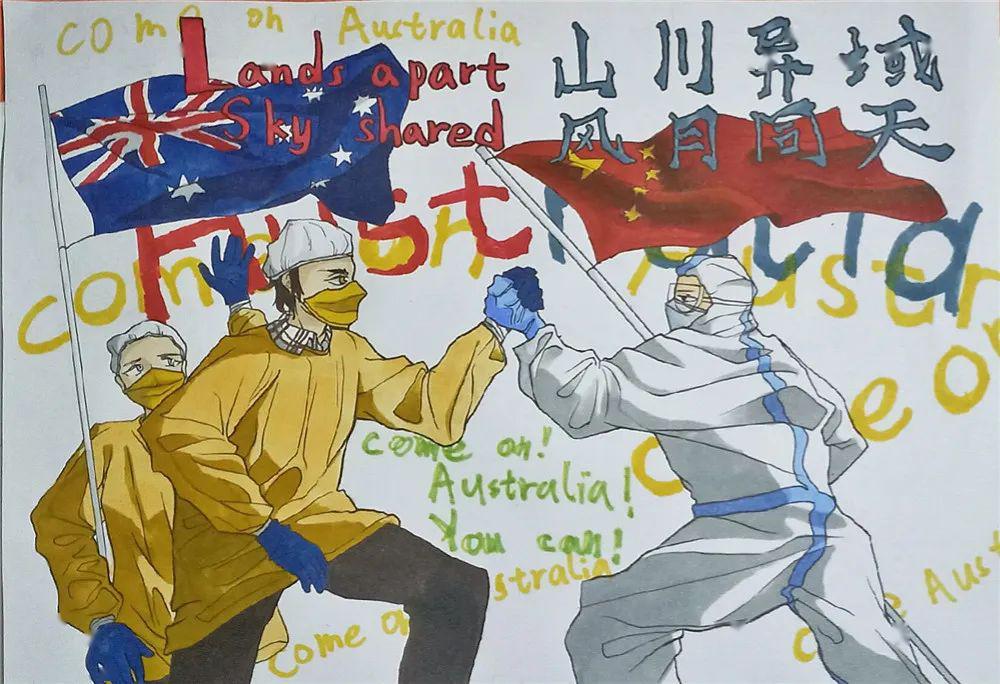 come on Australia
Lands apart
Sky shared
山川异域
风月同天
Australia
come on Australia
come on
come on!
Australia!
You can!
come on Australia
come Aust